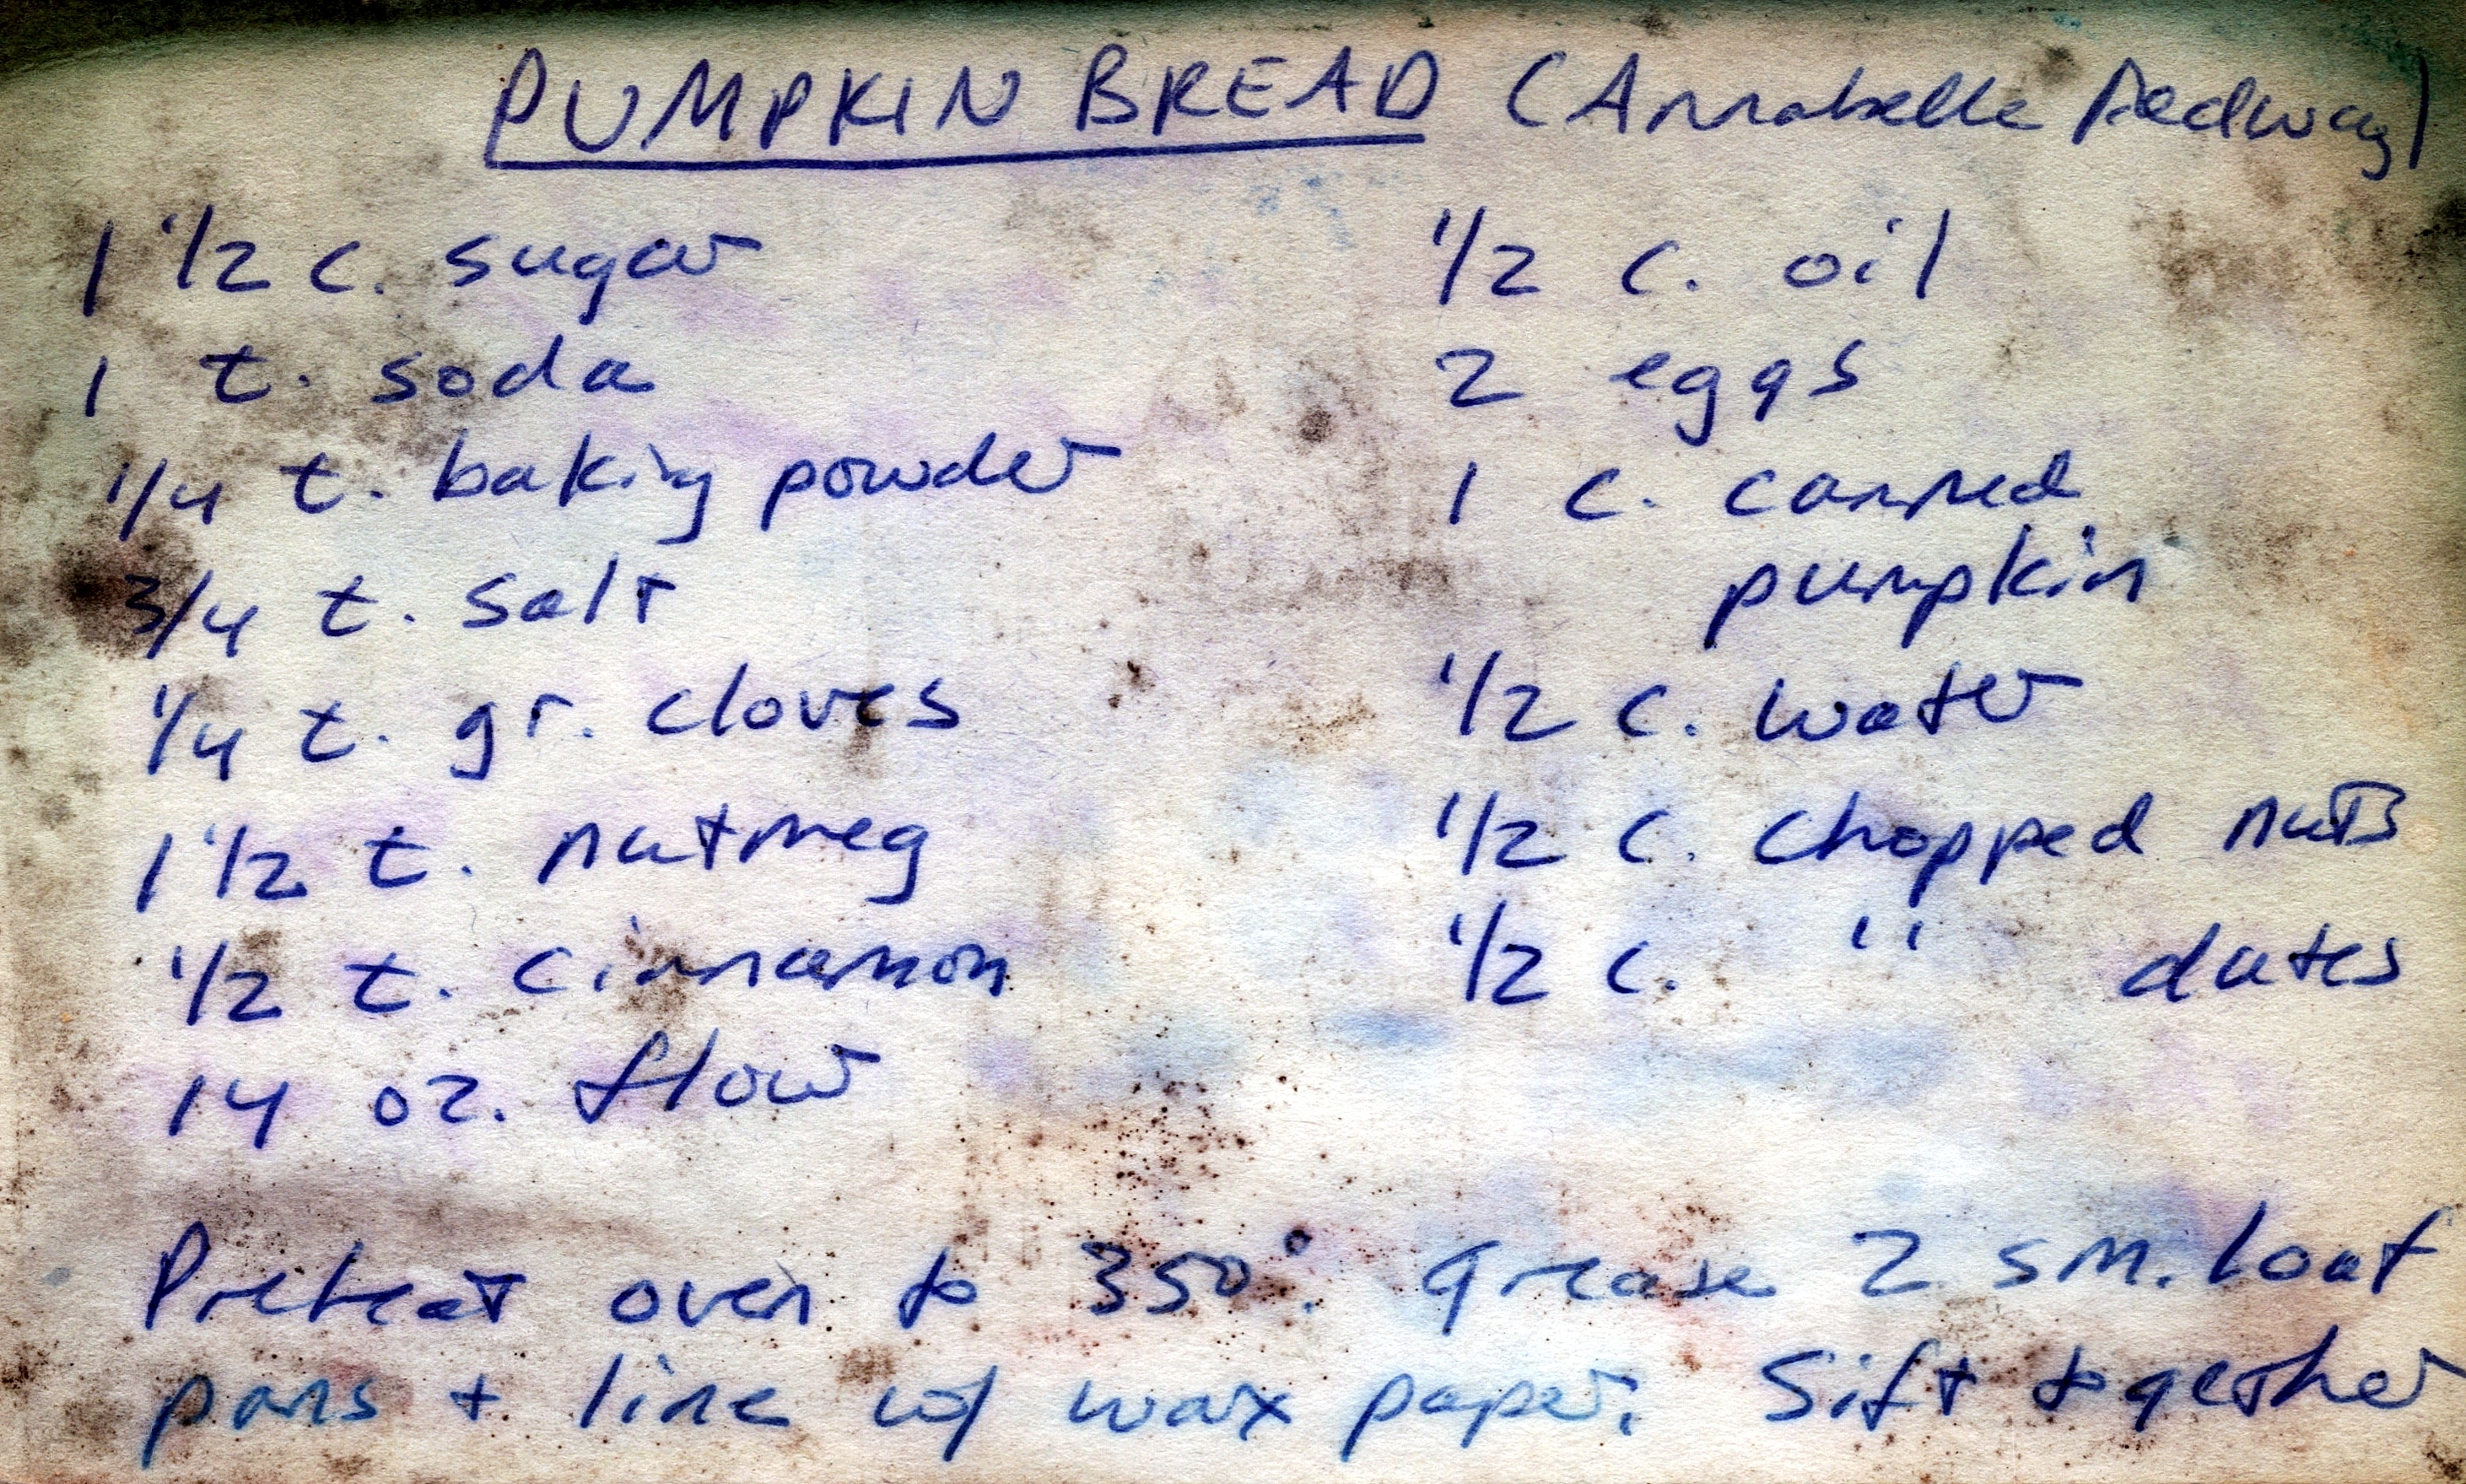 PUMPKIN BREAD (Annabelle Pedway)
1 1/2 c. sugar
1 t. soda
1/4 t. baking powder
3/4 t. salt
1/4 t. gr. cloves
1 1/2 t. nutmeg
1/2 t. cinnamon
14 oz. flour
1/2 c. oil
2 eggs
1 c. canned
pumpkin
1/2 c. water
1/2 c. chopped nuts
1/2 c. " dates
Preheat oven to 350°. Grease 2 sm. loaf
pans + line w/ wax paper. Sift together